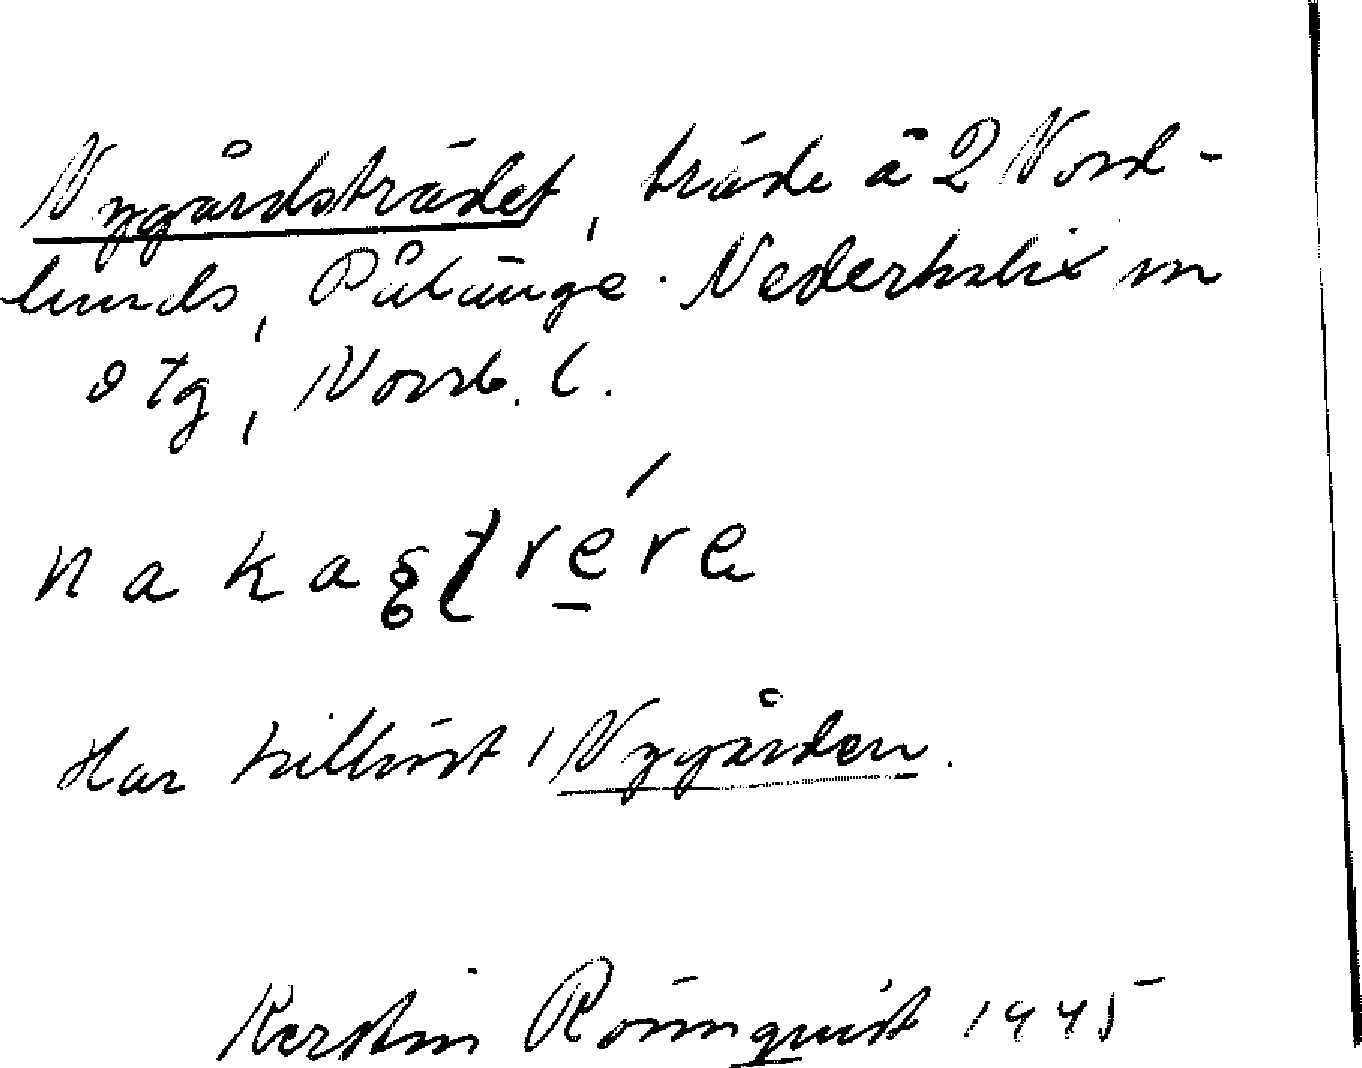 Nygårdsträdet, träde å 2 Nord-
lunds, Pålänge. Nederkalix sn
o tg, Norrb. l.
Har tillhört Nygården.
Kerstin Rönnquist 1945